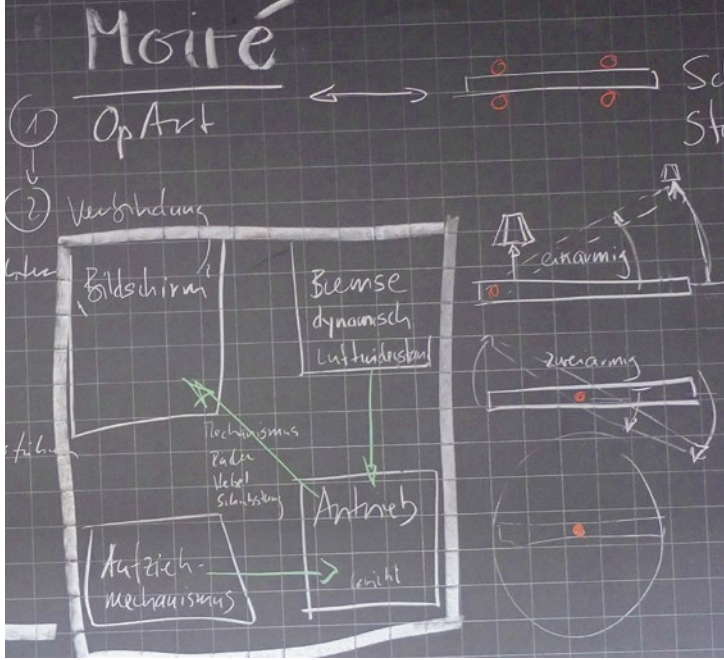 Moiré
1
OpArt
2
Verbindung
einarmig
Bildschirm
Bremse
dynamisch
Luftwiderstand
zweiarmig
Mechanismus
Räder
Hebel
Schubstang
Antrieb
Aufzieh-
mechanismus